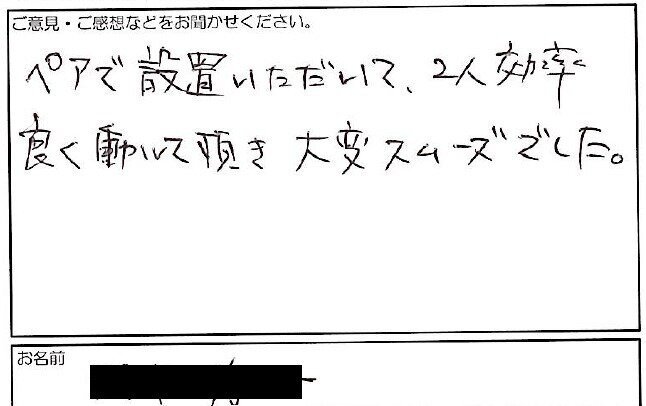 ご意見・ご感想などをお聞かせください。
ペアで設置いただいて、2人効率
良く動いて頂き 大変スムーズでした。
お名前